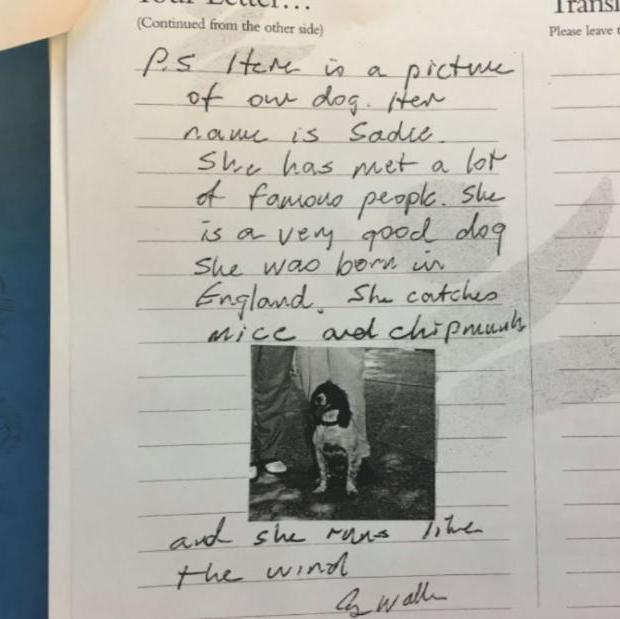 Your Letter...
(Continued from the other side)
Transl
Please leave t
P.S Here is a picture
of our dog. Her
name is Sadie.
She has met a lot
of famous people. She
is a very good dog
She was born in
England. She catches
mice and chipmunks
and she runs like
the wind
G Walker